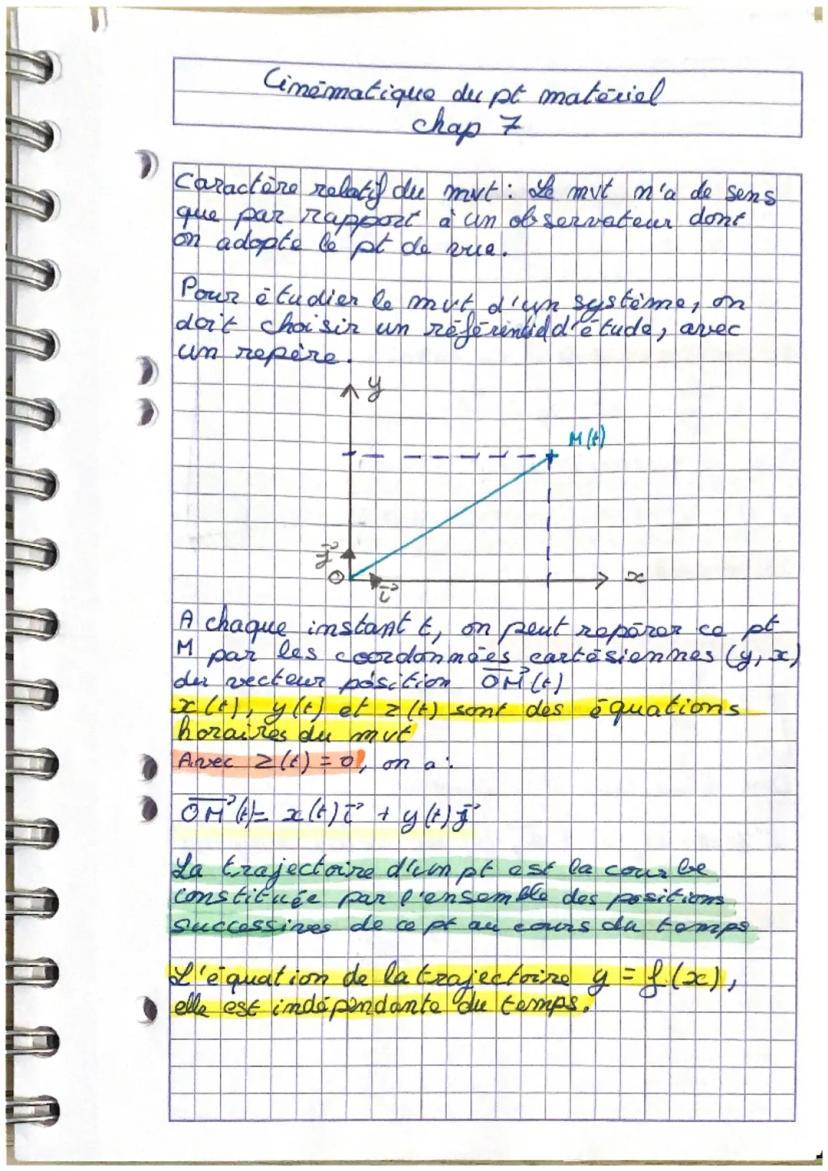 Cinématique du pt matériel
chap 7
Caractère relatif du mvt : Le mvt n'a de sens
que par rapport à un observateur dont
on adopte le pt de vue.
Pour étudier le mvt d'un système, on
doit choisir un référentiel d'étude, avec
un repère.
y
M(t)
j⃗
O
i⃗
x
A chaque instant t, on peut repérer ce pt
M par les coordonnées cartésiennes (y, x)
du vecteur position OM⃗(t)
x(t), y(t) et z(t) sont des équations
horaires du mvt
Avec z(t) = 0, on a :
OM⃗(t) = x(t)i⃗ + y(t)j⃗
La trajectoire d'un pt est la courbe
constituée par l'ensemble des positions
successives de ce pt au cours du temps
L'équation de la trajectoire y = f(x),
elle est indépendante du temps.